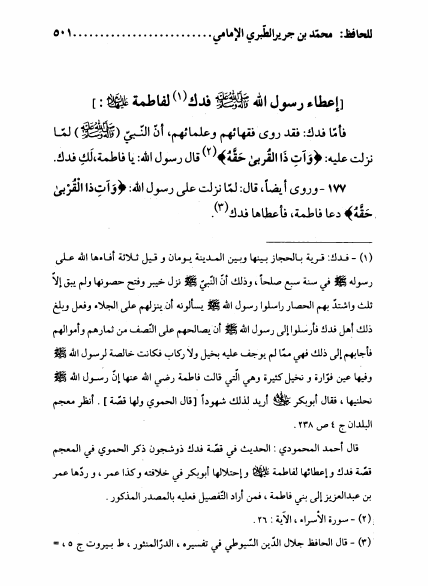 للحافظ: محمّد بن جرير الطّبري الإمامي..........................٥٠١
[إعطاء رسول الله ﷺ فدك(١) لفاطمة عليها السلام :]
فأمّا فدك: فقد روى فقهائهم وعلمائهم، أنّ النّبيّ (ﷺ) لمّا
نزلت عليه: ﴿وَآتِ ذَا القُربىٰ حَقَّهُ﴾(٢) قال رسول الله: يا فاطمة، لَكِ فدك.
١٧٧ - وروى أيضاً، قال: لمّا نزلت على رسول الله: ﴿وَآتِ ذا الْقُرْبىٰ
حَقَّهُ﴾ دعا فاطمة، فأعطاها فدك(٣).
(١) - فدك: قرية بالحجاز بينها وبين المدينة يومان و قيل ثلاثة أفاءها الله على
رسوله ﷺ في سنة سبع صلحاً، وذلك أنّ النّبيّ ﷺ نزل خيبر وفتح حصونها ولم يبق إلاّ
ثلث واشتدّ بهم الحصار راسلوا رسول الله ﷺ يسألونه أن ينزلهم على الجلاء وفعل وبلغ
ذلك أهل فدك فأرسلوا إلى رسول الله ﷺ أن يصالحهم على النّصف من ثمارهم وأموالهم
فأجابهم إلى ذلك فهي ممّا لم يوجف عليه بخيل ولا ركاب فكانت خالصة لرسول الله ﷺ
وفيها عين فوّارة و نخيل كثيرة وهي التي قالت فاطمة رضي الله عنها إنّ رسول الله ﷺ
نحلنيها ، فقال أبوبكر أريد لذلك شهوداً [قال الحموي ولها قصّة] . أنظر معجم
البلدان ج ٤ ص ٢٣٨.
قال أحمد المحمودي : الحديث في قصّة فدك ذوشجون ذكر الحموي في المعجم
قصّة فدك و إعطائها لفاطمة عليها السلام و إحتلالها أبوبكر في خلافته وكذا عمر ، و ردّها عمر
بن عبدالعزيز إلى بني فاطمة ، فمن أراد التّفصيل فعليه بالمصدر المذكور .
(٢) - سورة الأسراء، الآية : ٢٦.
(٣) - قال الحافظ جلال الدّين السّيوطي في تفسيره ، الدرّ المنثور ، ط بيروت ج ٥ ، =